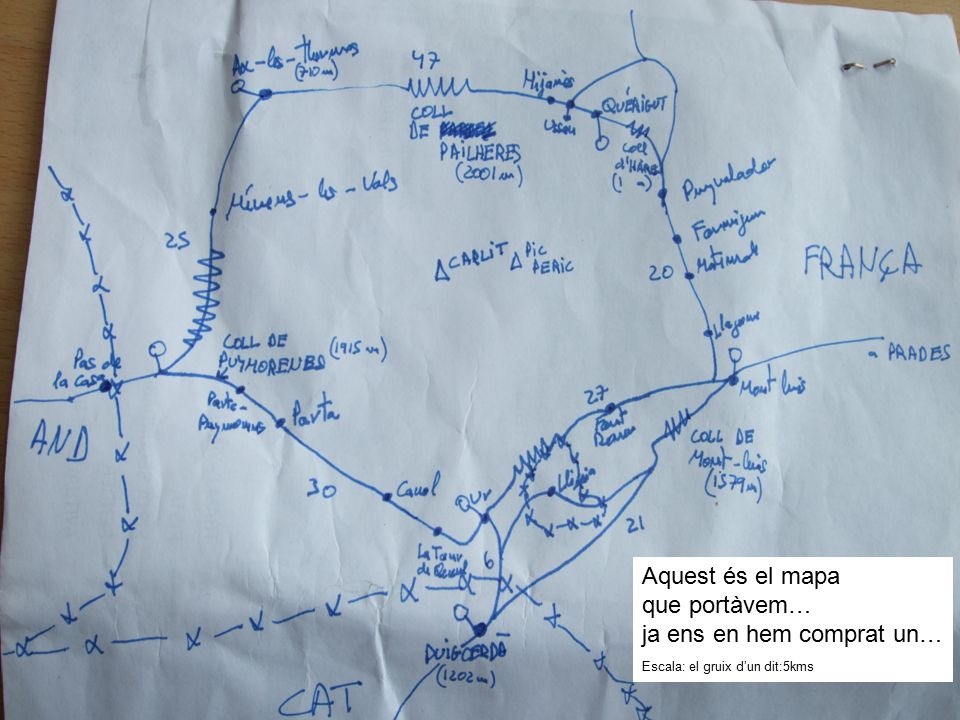 Ax-les-thermes
(710 m)
47
COLL
DE
PAILHERES
(2001 m)
Mijanès
Usson
QUÉRIGUT
COLL
d'HARES
(1 m)
Puyvalador
Formiguer
Matemal
20
Llagone
FRANÇA
a PRADES
Mont luis
COLL DE
Mont-luis
(1579 m)
Mérens-les-Vals
25
CARLIT
PIC
PERIC
Pas de
la casa
AND
COLL DE
PUYMORENES
(1915 m)
Porte-
Puymorens
Porta
30
Carol
La Tour
de Querol
Our
27
Font
Romeu
Llivia
21
6
PUIGCERDÀ
(1202 m)
CAT
Aquest és el mapa
que portàvem…
ja ens en hem comprat un…
Escala: el gruix d'un dit:5kms